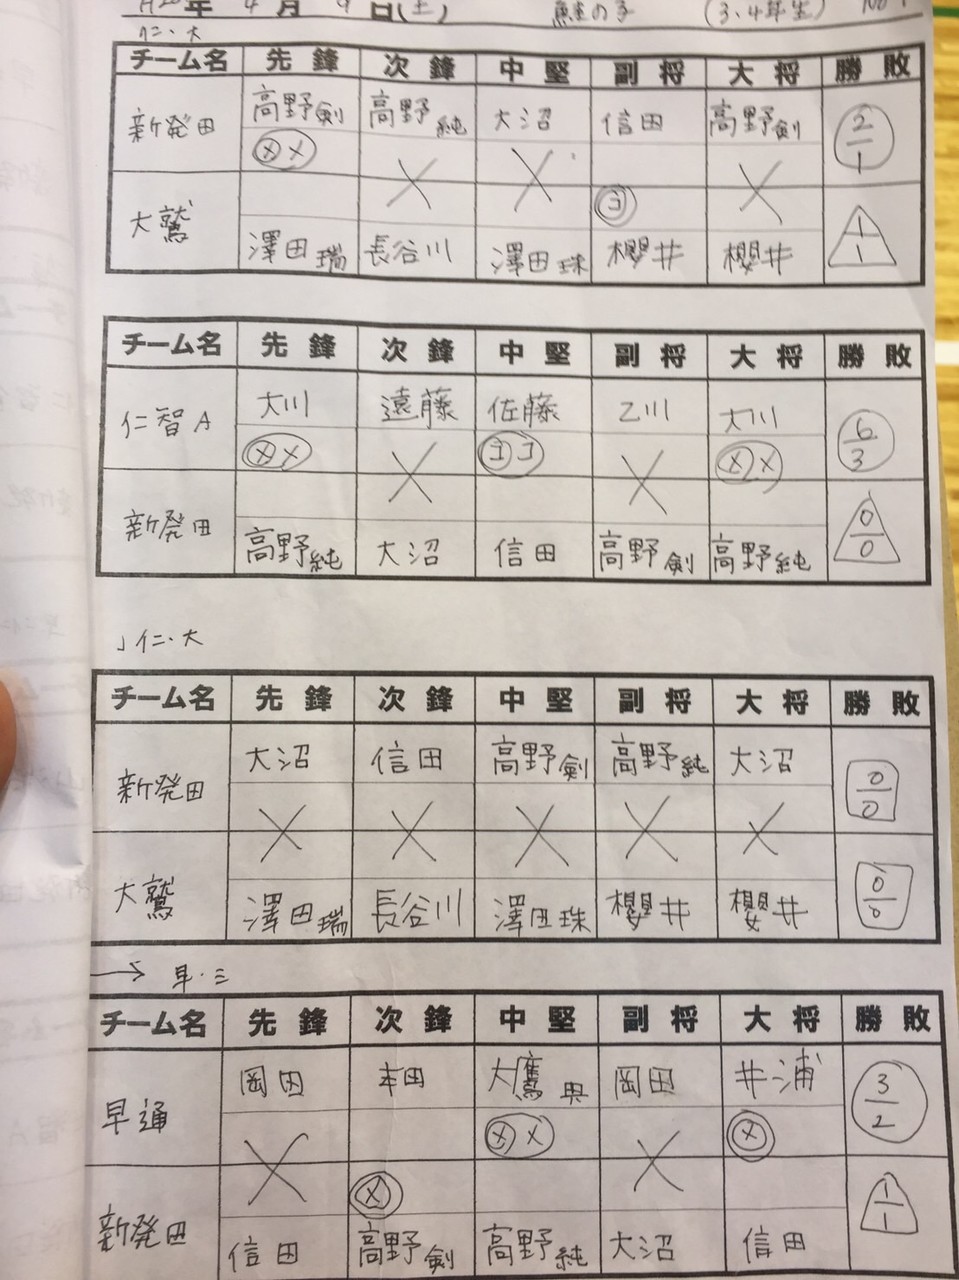 年 4月 9日(土) 鮭の子 (3、4年生) No 1
仁・大
チーム名 先鋒 次鋒 中堅 副将 大将 勝敗
新発田 高野剣 高野純 大沼 信田 高野剣 2/1
メメ
コ
大鷲 澤田瑞 長谷川 澤田珠 櫻井 櫻井 1/1
チーム名 先鋒 次鋒 中堅 副将 大将 勝敗
仁智A 大川 遠藤 佐藤 乙川 大川 6/3
メメ ココ メメ
新発田 高野純 大沼 信田 高野剣 高野純 0/0
仁・大
チーム名 先鋒 次鋒 中堅 副将 大将 勝敗
新発田 大沼 信田 高野剣 高野純 大沼 0/0
大鷲 澤田瑞 長谷川 澤田珠 櫻井 櫻井 0/0
→ 早・三
チーム名 先鋒 次鋒 中堅 副将 大将 勝敗
早通 岡田 本田 大鷹典 岡田 井浦 3/2
メメ メ
メ
新発田 信田 高野剣 高野純 大沼 信田 1/1